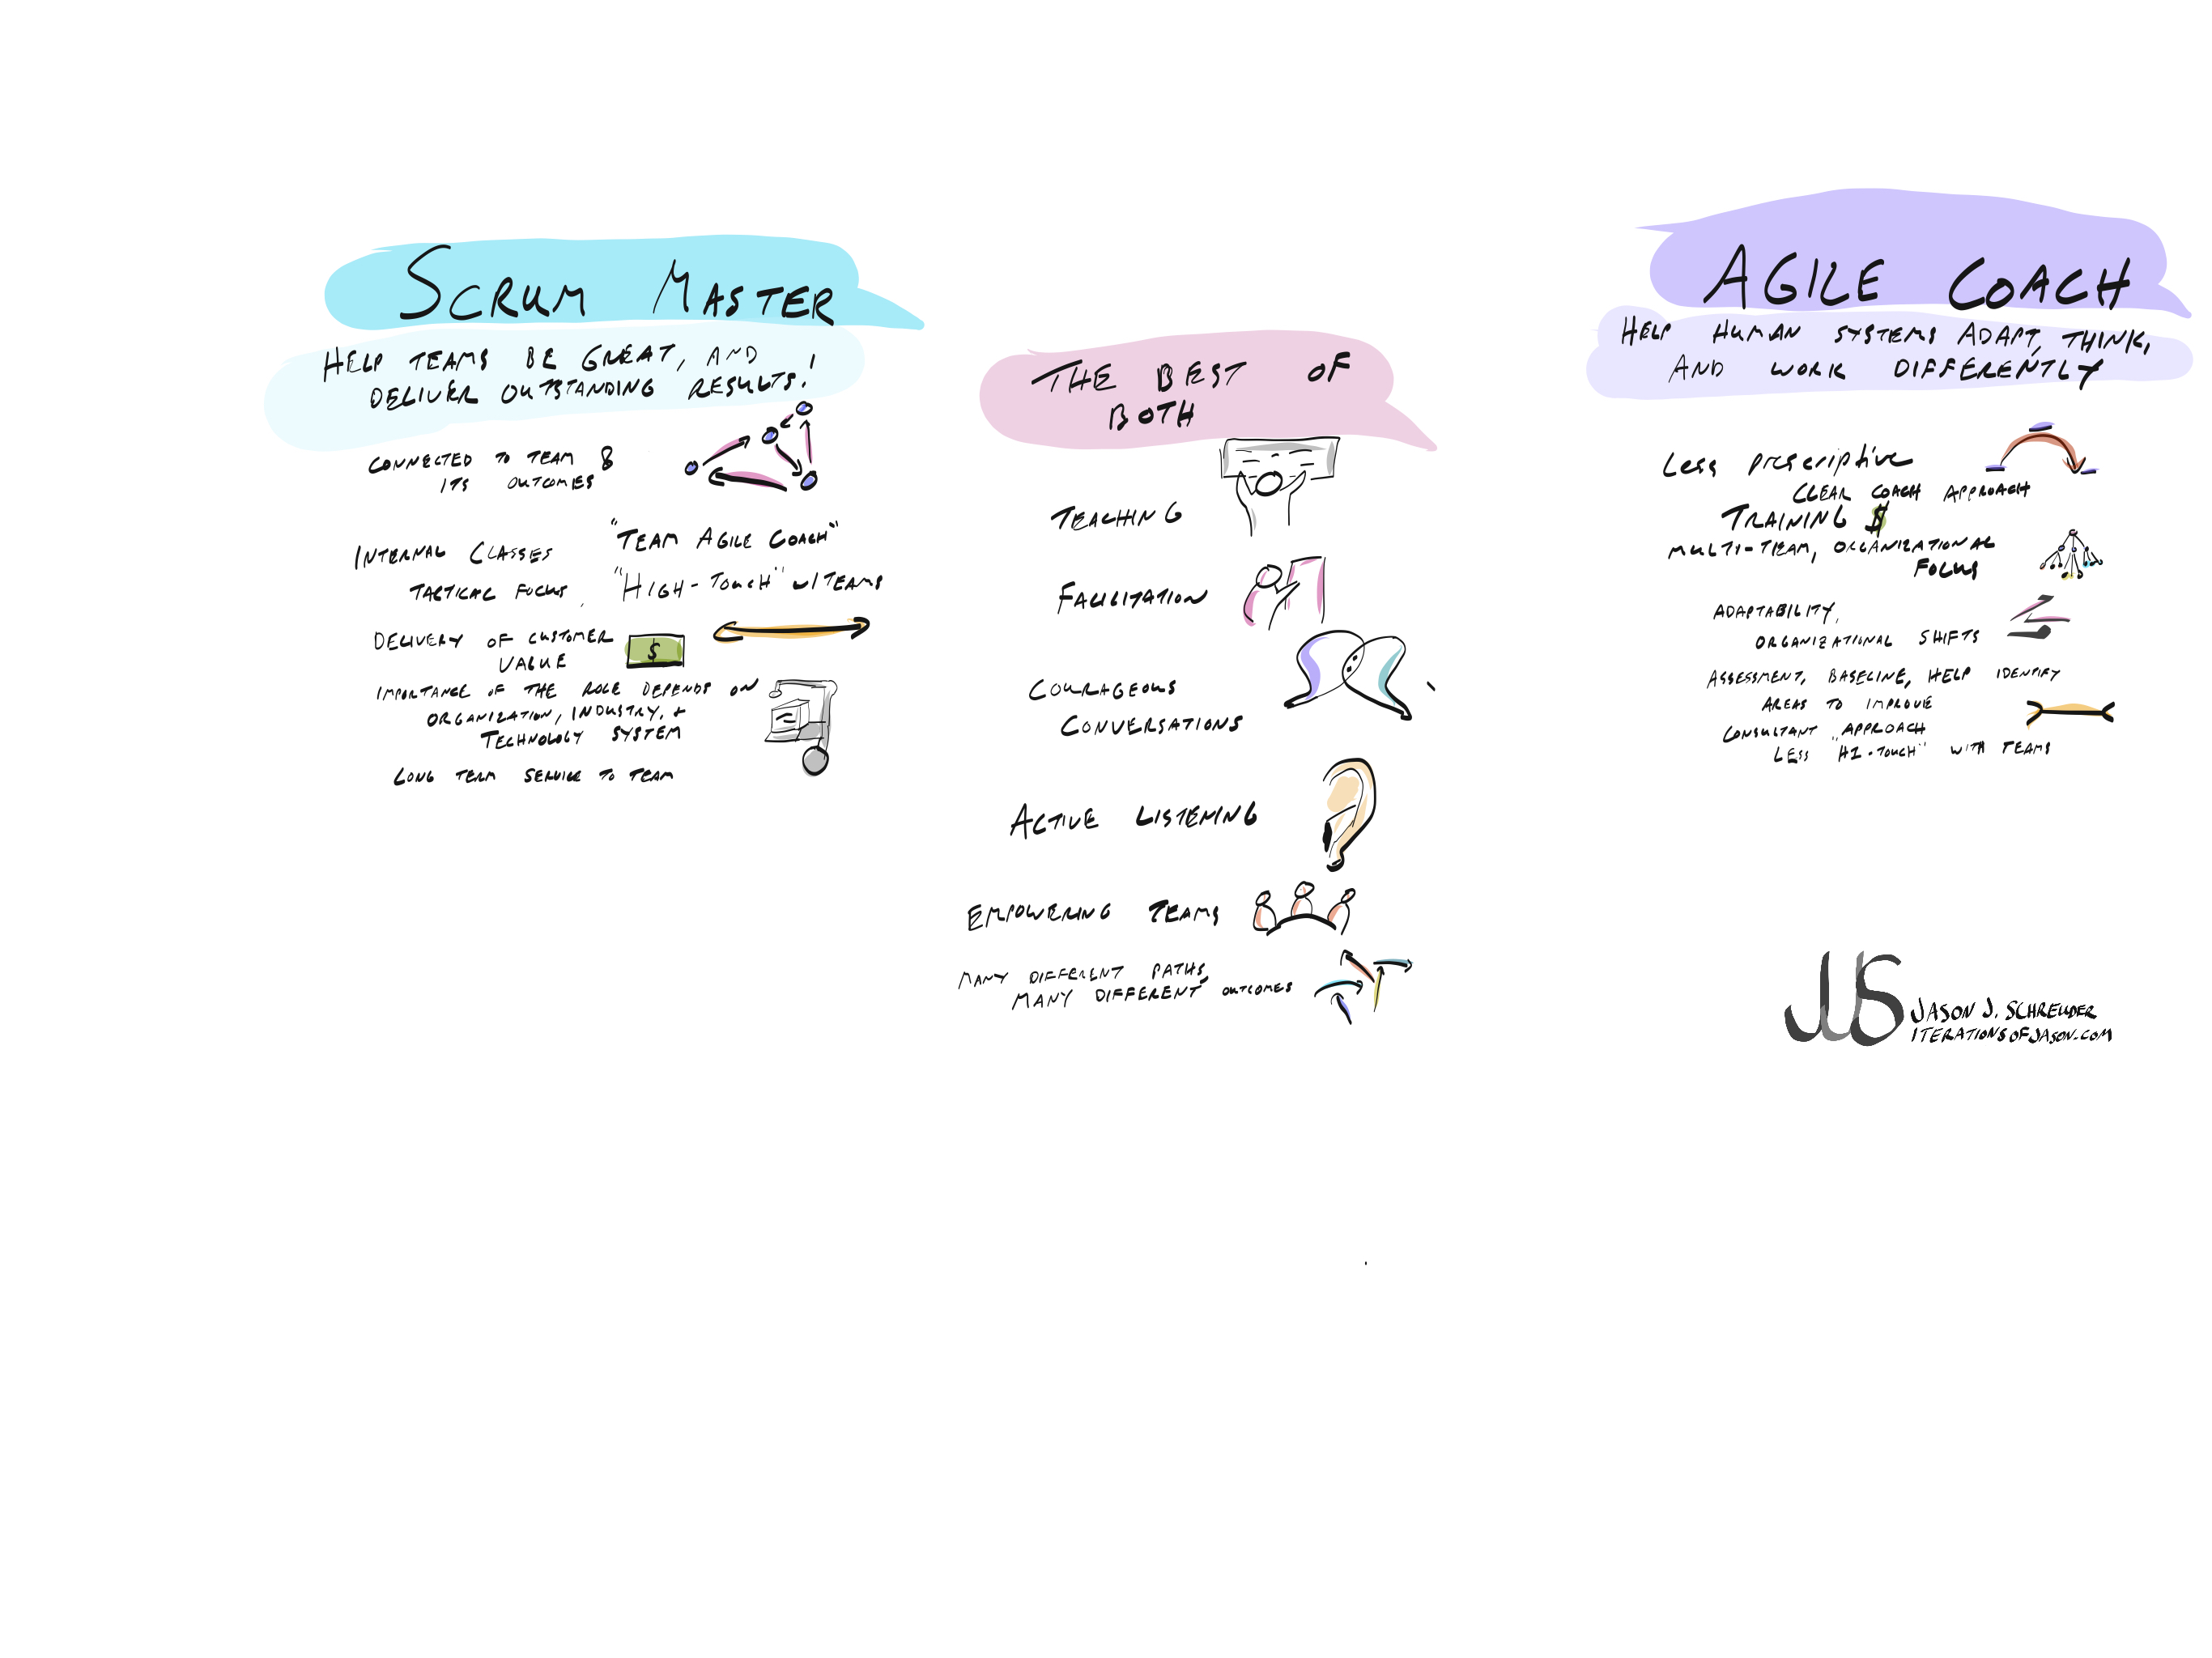 SCRUM MASTER
HELP TEAMS BE GREAT, AND
DELIVER OUTSTANDING RESULTS!
CONNECTED TO TEAM &
ITS OUTCOMES
INTERNAL CLASSES
"TEAM AGILE COACH"
TACTICAL FOCUS
"HIGH-TOUCH" W/TEAMS
DELIVERY OF CUSTOMER
VALUE
$
IMPORTANCE OF THE ROLE DEPENDS ON
ORGANIZATION, INDUSTRY, +
TECHNOLOGY SYSTEM
LONG TERM SERVICE TO TEAM
THE BEST OF
BOTH
TEACHING
FACILITATION
COURAGEOUS
CONVERSATIONS
ACTIVE LISTENING
EMPOWERING TEAMS
MANY DIFFERENT PATHS,
MANY DIFFERENT OUTCOMES
AGILE COACH
HELP HUMAN SYSTEMS ADAPT, THINK,
AND WORK DIFFERENTLY
Less prescriptive
CLEAR COACH APPROACH
TRAINING $
MULTI-TEAM, ORGANIZATIONAL
FOCUS
ADAPTABILITY,
ORGANIZATIONAL SHIFTS
ASSESSMENT, BASELINE, HELP IDENTIFY
AREAS TO IMPROVE
CONSULTANT APPROACH
LESS "HI-TOUCH" WITH TEAMS
JJS
JASON J. SCHREUDER
ITERATIONSOFJASON.COM